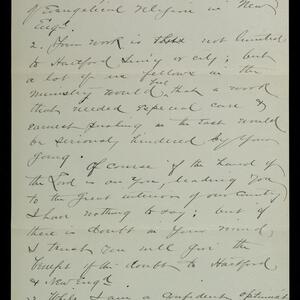 of evangelical religion in New
Engd.
2. Your work is not limited
to Hartford Sem'y or city; but
a lot of us fellows in the
ministry would feel that a work
that needed especial care &
earnest pushing in the East would
be seriously hindered by your
going.
Of course if the hand of
the Lord is on you, leading you
to the great interior of our country
I have nothing to say; but if
there is doubt in your mind,
I trust you will give the
benefit of the doubt to Hartford
& New Engd.
3. While I am a confident optimist